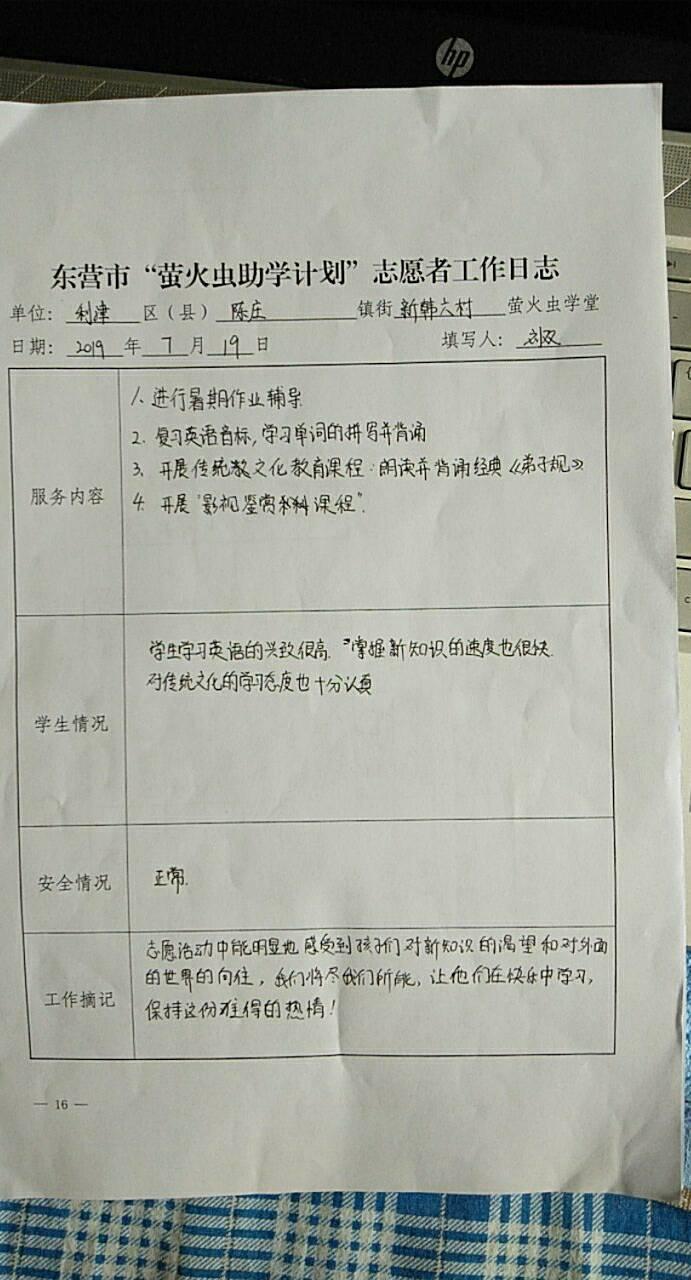 hp
东营市“萤火虫助学计划”志愿者工作日志
单位：利津区（县）陈庄镇街新韩六村萤火虫学堂
日期：2019年7月19日 填写人：刘双
服务内容
1. 进行暑期作业辅导
2. 复习英语音标，学习单词的拼写并背诵
3. 开展传统文化教育课程：朗读并背诵经典《弟子规》
4. 开展“影视鉴赏课程”.
学生情况
学生学习英语的兴致很高. 掌握新知识的速度也很快.
对传统文化的学习态度也十分认真
安全情况
正常.
工作摘记
志愿活动中能明显地感受到孩子们对新知识的渴望和对外面
的世界的向往，我们将尽我们所能，让他们在快乐中学习，
保持这份难得的热情！
— 16 —